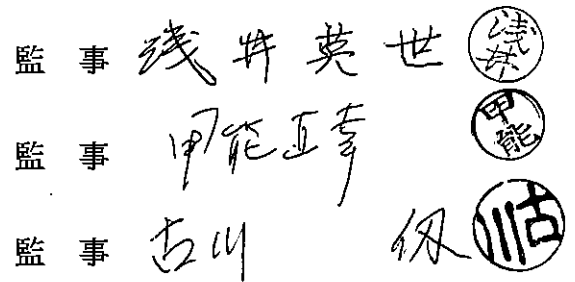 監事 浅井英世 浅井
監事 甲能正幸 甲能
監事 古川 古川